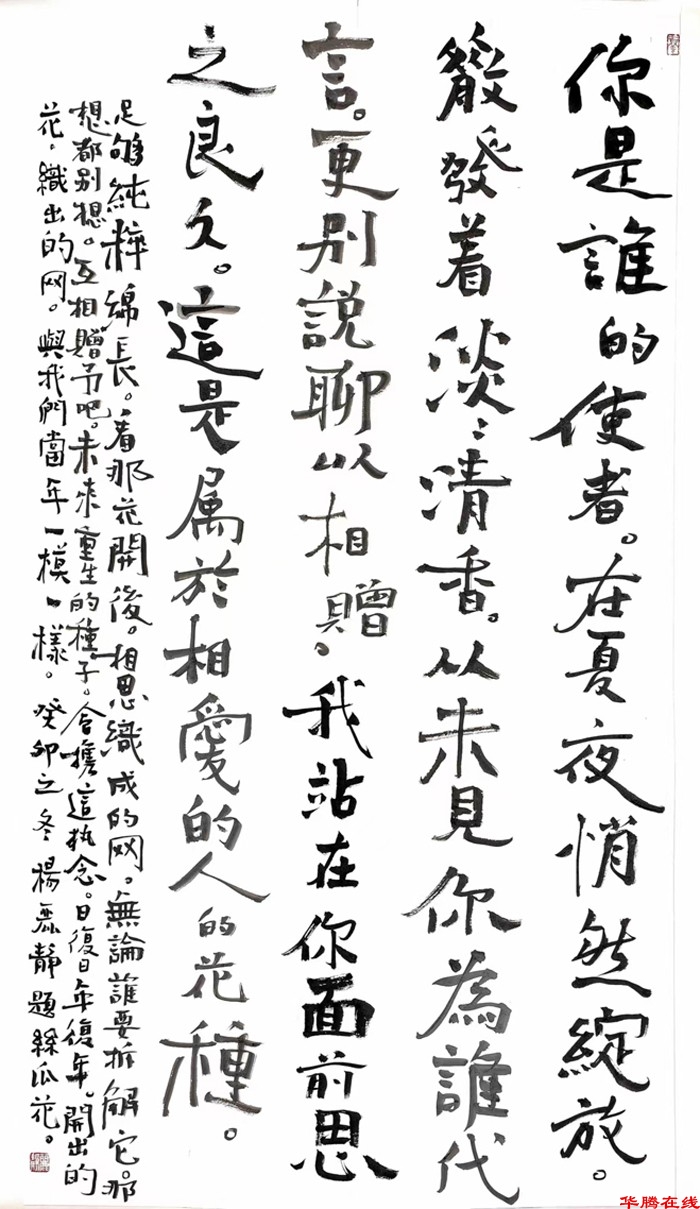 你是誰的使者。在夏夜悄然綻放。
散發着淡淡清香。从未見你為誰代
言。更别説聊以相贈。我站在你面前思
之良久。這是属於相愛的人的花種。
足够純粹綿長。看那花開後。相思織成的网。無論誰要拆解它。那
想都别想。互相贈予吧。未来重生的種子。会攜這执念。日復日年復年。開出的
花。織出的网。與我們當年一模一樣。癸卯之冬楊静題絲瓜花。
华腾在线